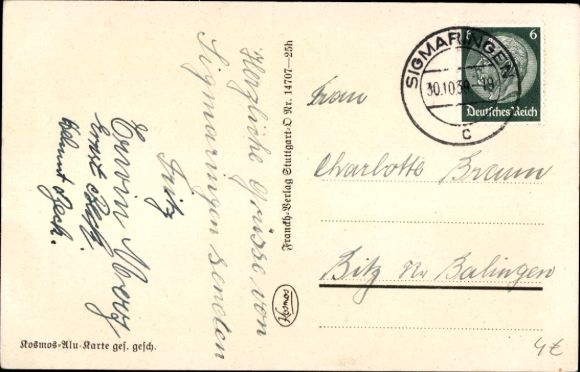 Herzliche Grüsse von
Sigmaringen senden
Fritz
Erwin
Ernst
Helmut
Kosmos-Alu-Karte ges. gesch.
Franckh-Verlag Stuttgart-O Nr. 14707—25h
Kosmos
SIGMARINGEN
30.10.39
c
6
Deutsches Reich
Frau
Charlotte Braun
Bitz Kr Balingen
4€